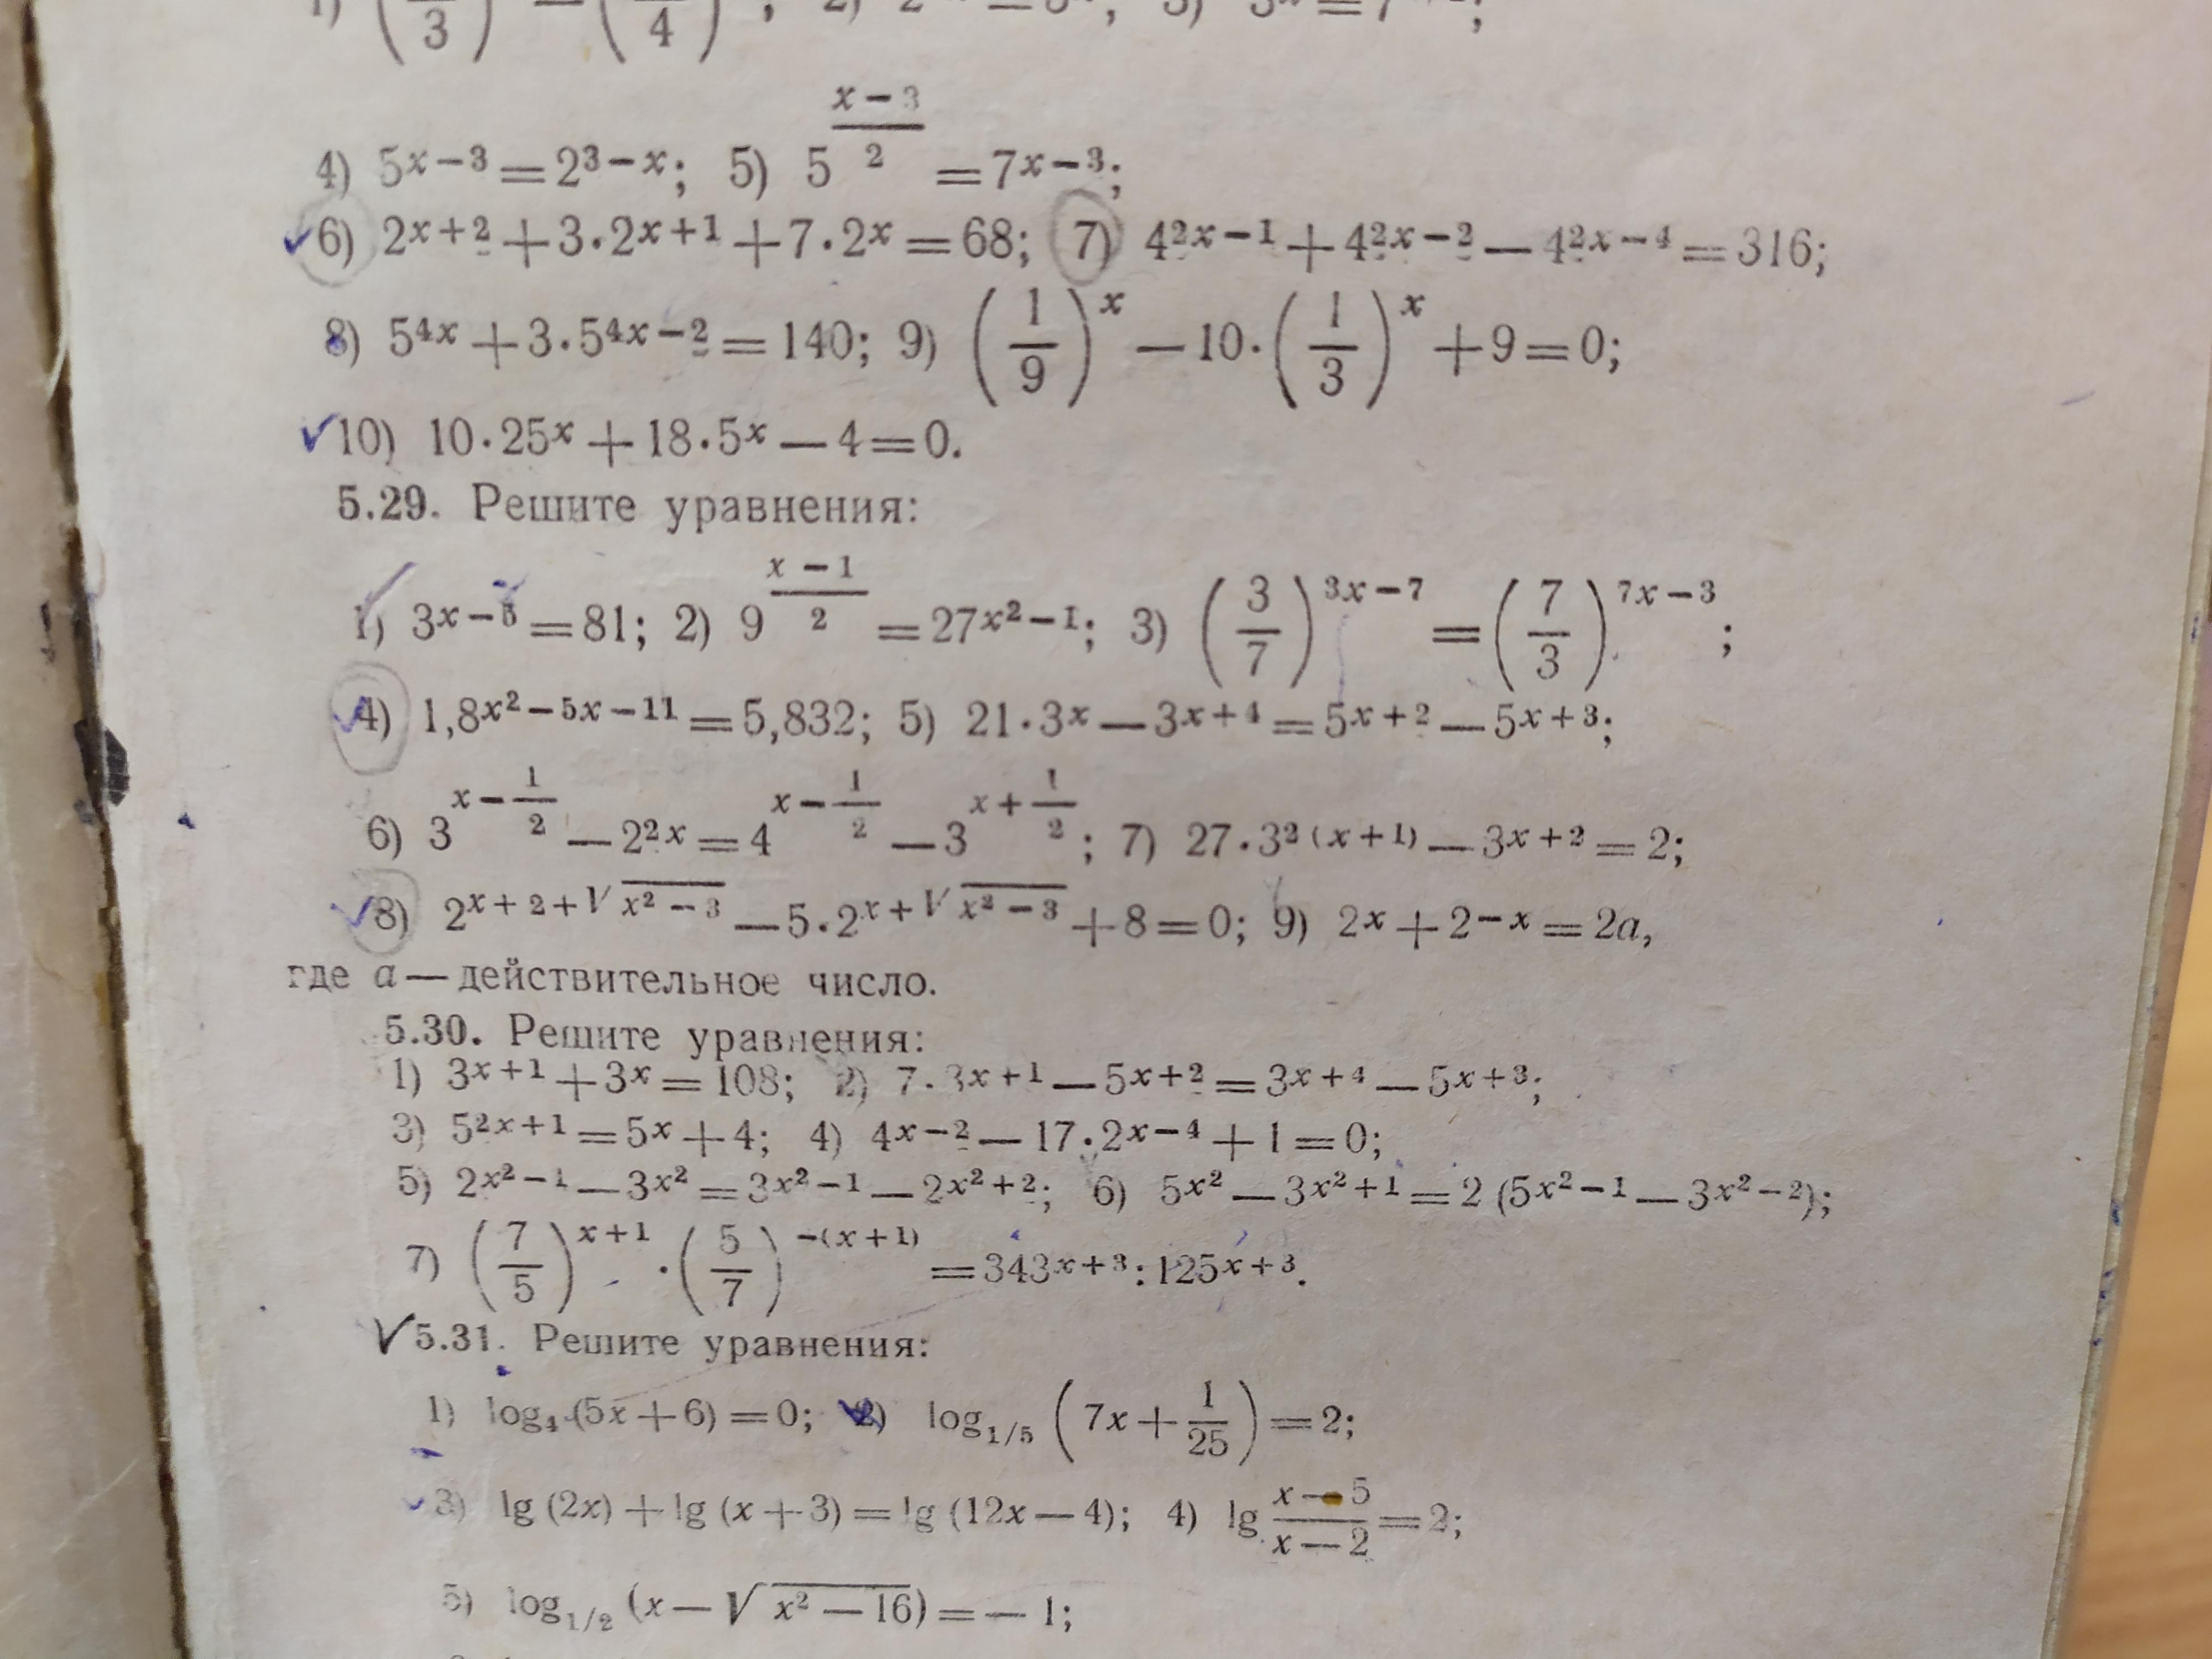 4) 5^{x-3} = 2^{3-x}; 5) 5^{\frac{x-3}{2}} = 7^{x-3};
6) 2^{x+2} + 3·2^{x+1} + 7·2^x = 68; 7) 4^{2x-1} + 4^{2x-2} — 4^{2x-4} = 316;
8) 5^{4x} + 3·5^{4x-2} = 140; 9) (\frac{1}{9})^x — 10·(\frac{1}{3})^x + 9 = 0;
10) 10·25^x + 18·5^x — 4 = 0.
5.29. Решите уравнения:
1) 3^{x-5} = 81; 2) 9^{\frac{x-1}{2}} = 27^{x^2-1}; 3) (\frac{3}{7})^{3x-7} = (\frac{7}{3})^{7x-3};
4) 1,8^{x^2-5x-11} = 5,832; 5) 21·3^x — 3^{x+4} = 5^{x+2} — 5^{x+3};
6) 3^{x-\frac{1}{2}} — 2^{2x} = 4^{x-\frac{1}{2}} — 3^{x+\frac{1}{2}}; 7) 27·3^{2(x+1)} — 3^{x+2} = 2;
8) 2^{x+2+\sqrt{x^2-3}} — 5·2^{x+\sqrt{x^2-3}} + 8 = 0; 9) 2^x + 2^{-x} = 2a,
где a — действительное число.
5.30. Решите уравнения:
1) 3^{x+1} + 3^x = 108; 2) 7·3^{x+1} — 5^{x+2} = 3^{x+4} — 5^{x+3};
3) 5^{2x+1} = 5^x + 4; 4) 4^{x-2} — 17·2^{x-4} + 1 = 0;
5) 2^{x^2-1} — 3^{x^2} = 3^{x^2-1} — 2^{x^2+2}; 6) 5^{x^2} — 3^{x^2+1} = 2 (5^{x^2-1} — 3^{x^2-2});
7) (\frac{7}{5})^{x+1} · (\frac{5}{7})^{-(x+1)} = 343^{x+3} : 125^{x+3}.
5.31. Решите уравнения:
1) log_4 (5x + 6) = 0; 2) log_{1/5} (7x + \frac{1}{25}) = 2;
3) lg (2x) + lg (x + 3) = lg (12x — 4); 4) lg \frac{x — 5}{x — 2} = 2;
5) log_{1/2} (x — \sqrt{x^2 — 16}) = — 1;